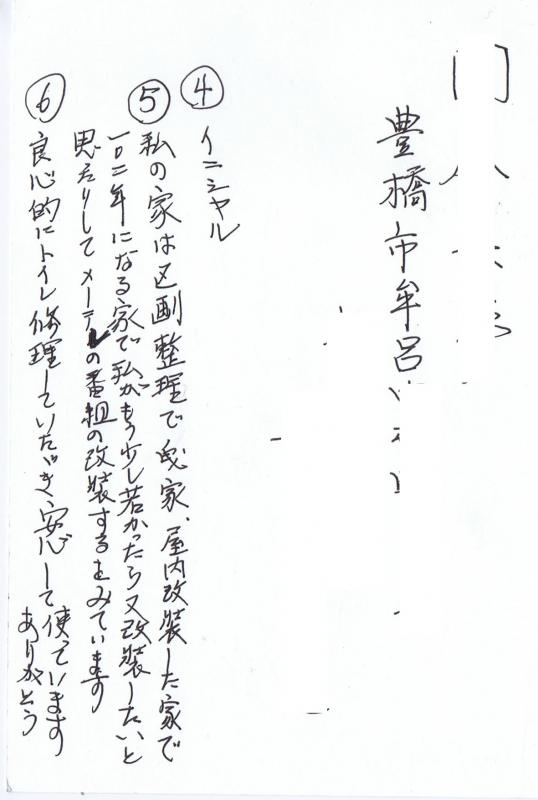 豊橋市牟呂
④
イニシャル
⑤
私の家は区画整理で曳家、屋内改装した家で
一〇二年になる家で私がもう少し若かったら又改装したいと
思たりしてメーテルの番組の改装するをみています
⑥
良心的にトイレ修理していただき安心して使っています
ありがとう